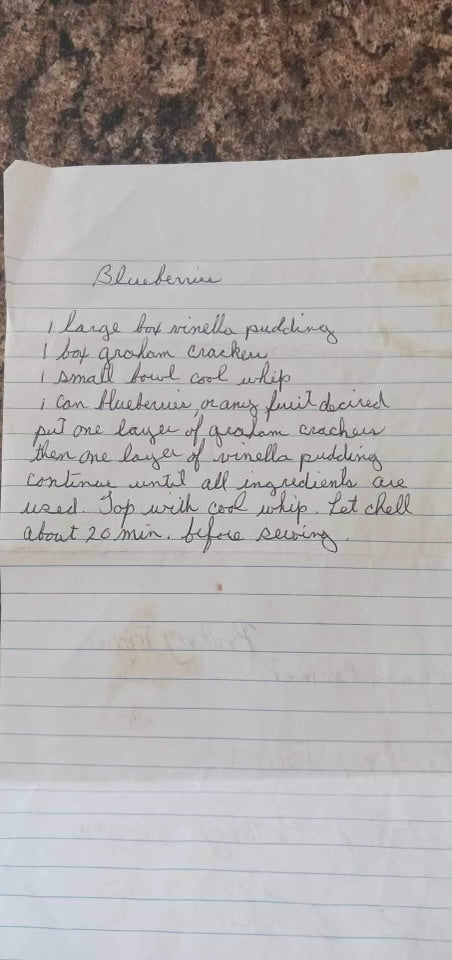 Blueberries
1 large box vinella pudding
1 box graham crackers
1 small bowl cool whip
1 can blueberries, or any fruit decired
put one layer of graham crackers
then one layer of vinella pudding
continue until all ingredients are
used. Top with cool whip. Let chell
about 20 min. before serving.